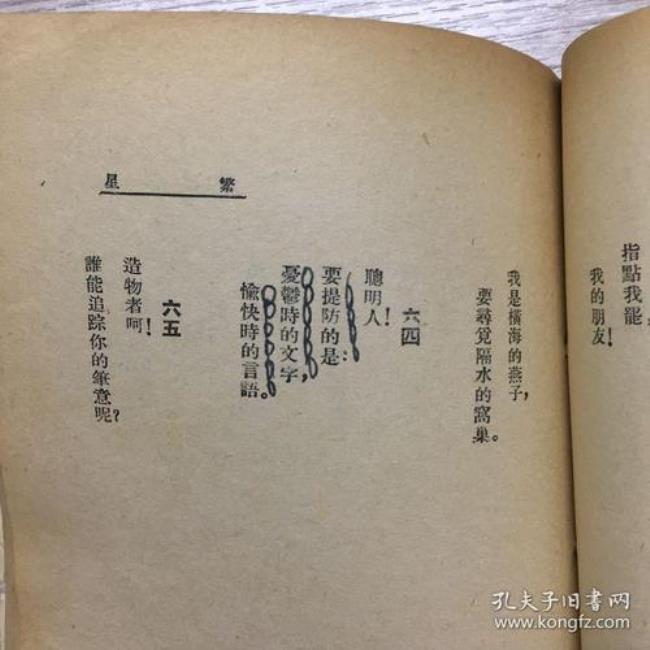 指點我罷，
我的朋友！
我是橫海的燕子，
要尋覓隔水的窩巢。
繁星
六四
聰明人！
要提防的是：
憂鬱時的文字，
愉快時的言語。
六五
造物者呵！
誰能追踪你的筆意呢？
孔夫子旧书网
www.kongfz.com